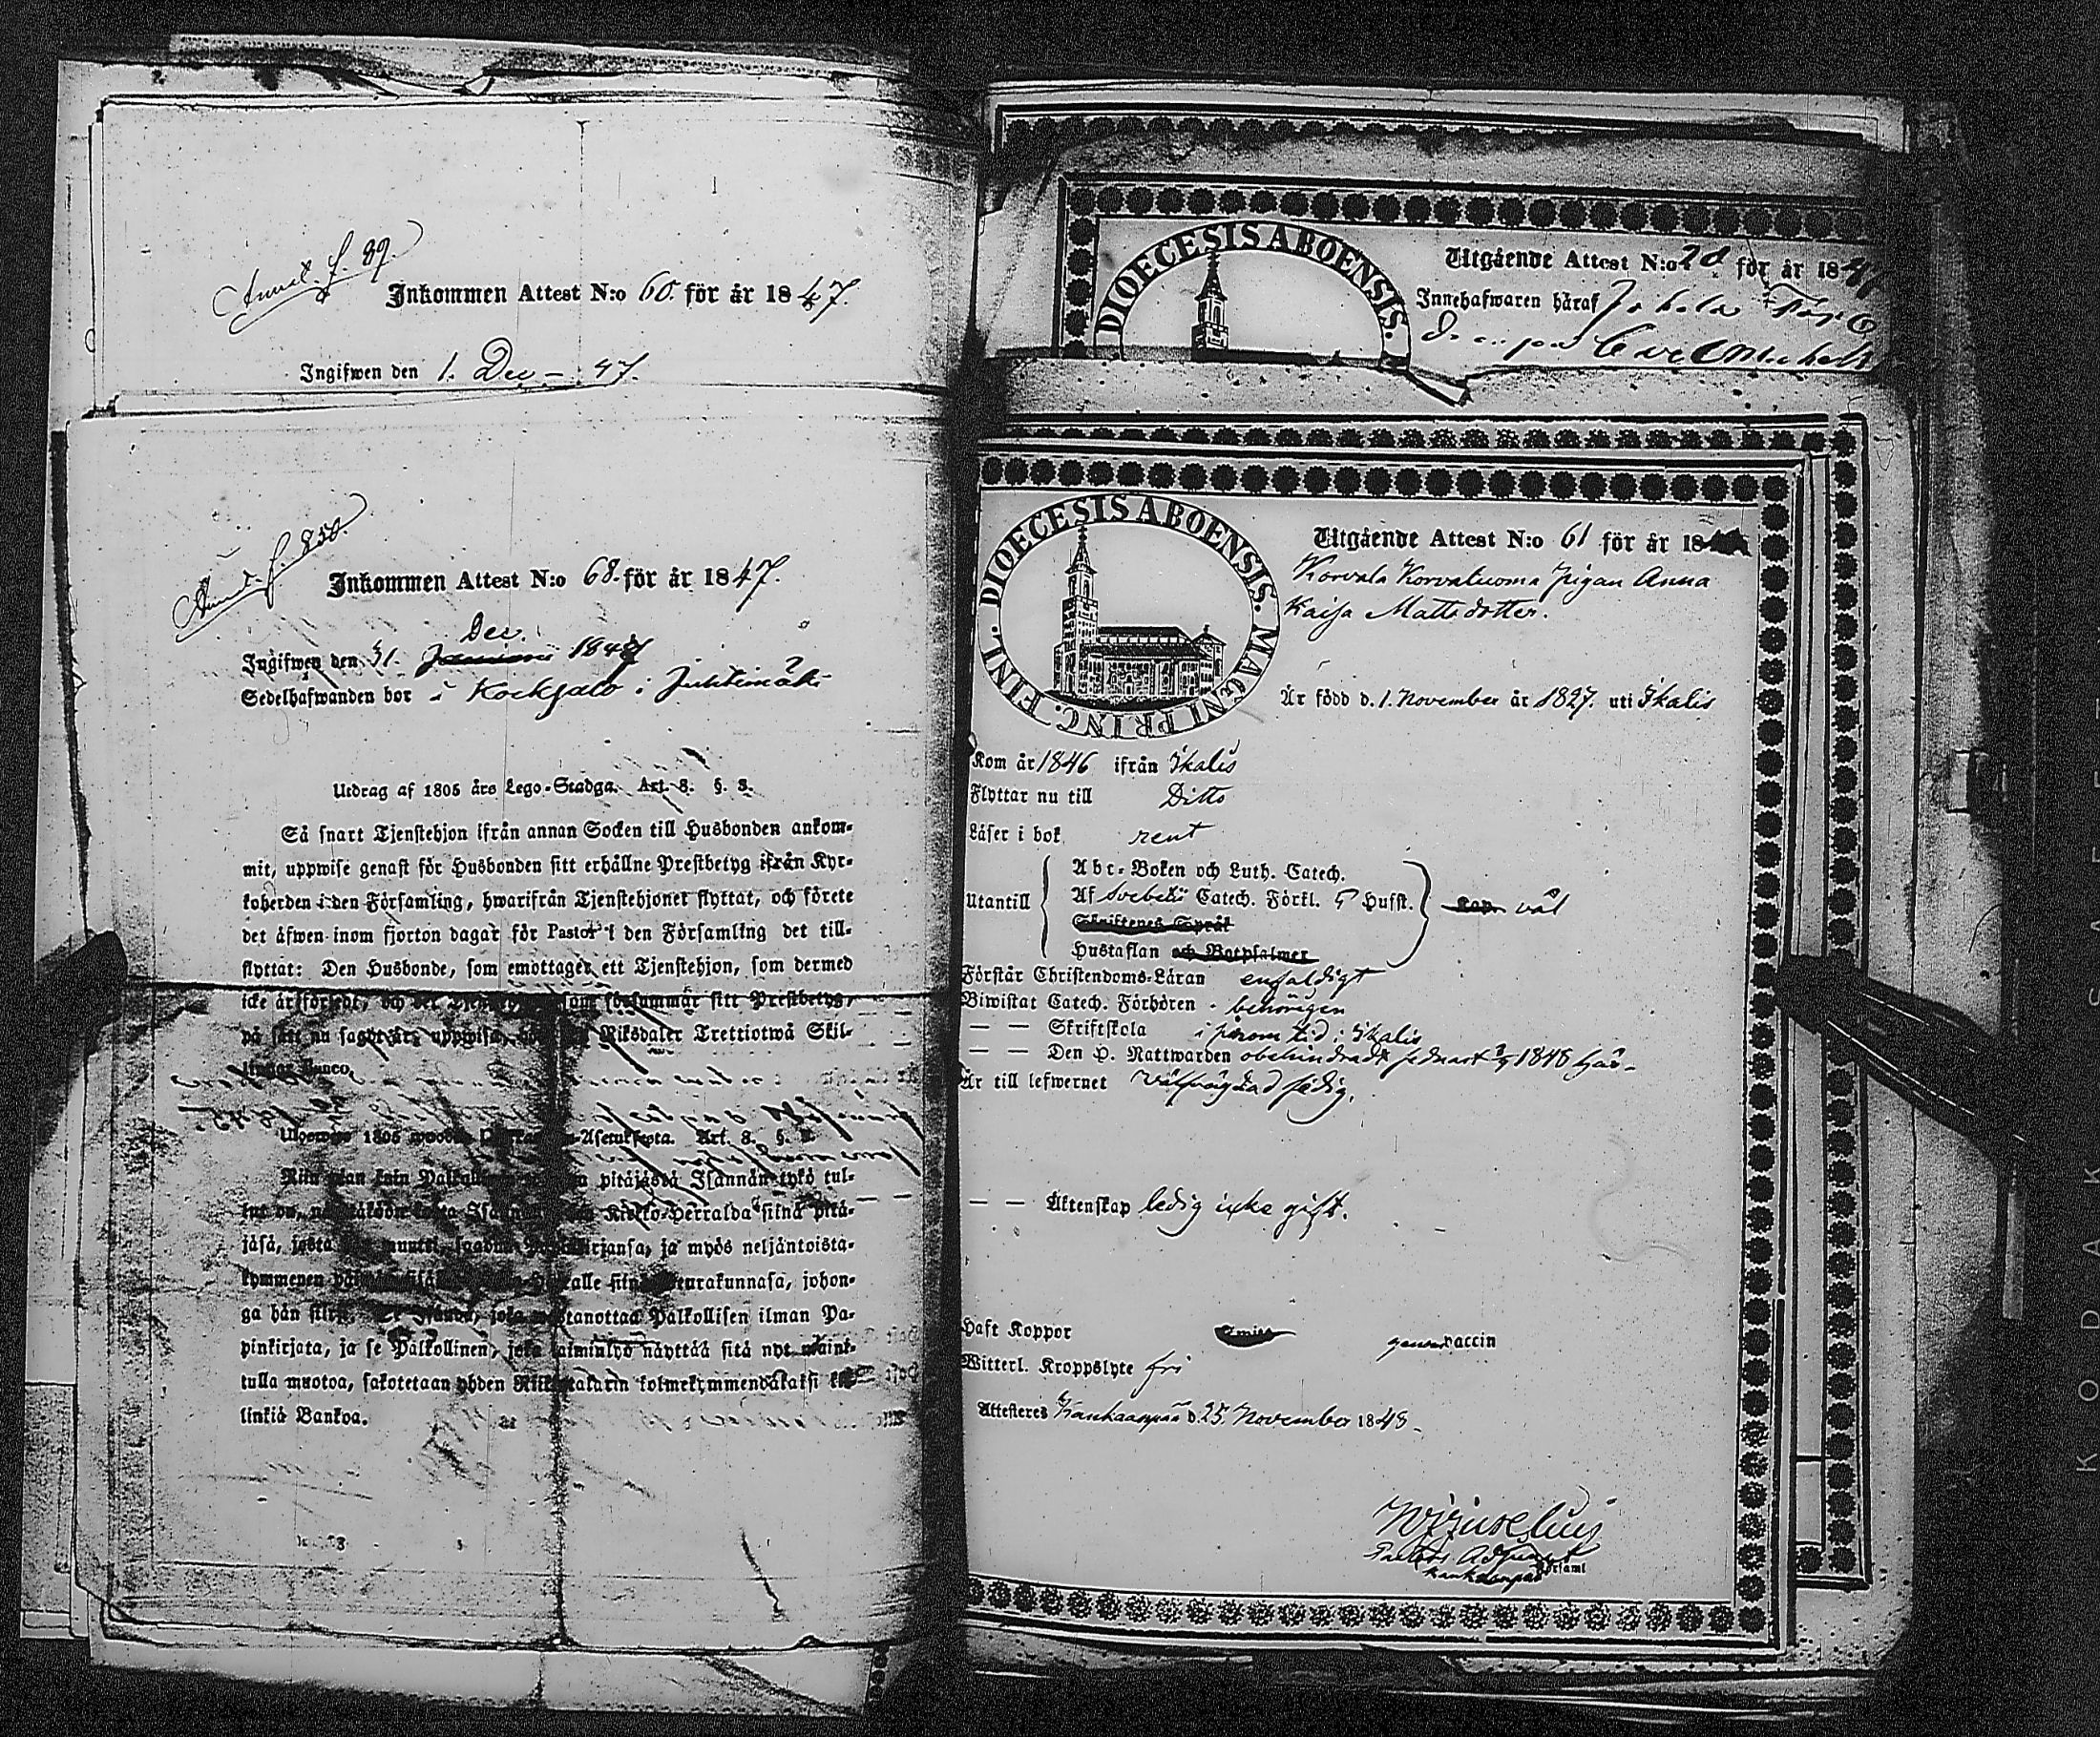 Annot. f. 89.
Inkommen Attest N:o 60. för år 1847.
Ingifwen den 1. Dec - 47.
Annot. f. 850.
Inkommen Attest N:o 68. för år 1847.
Dec.
Ingifwen den 31. Januarii 1848
Sedelhafwanden bor i Kockjalo i
Utdrag af 1805 års Lego-Stadga. Art. 8. §. 3.
Så snart Tjenstehjon ifrån annan Socken till Husbonden ankom-
mit, uppwise genast för Husbonden sitt erhållne Prestbetyg ifrån Kyr-
koherden i den Församling, hwarifrån Tjenstehjonet flyttat, och förete
det äfwen inom fjorton dagar för Pastor i den Församling det till-
flyttat: Den Husbonde, som emottager ett Tjenstehjon, som dermed
icke är försedt, och det som försummar sitt Prestbetyg,
på sätt nu sagdt är, uppwisa, Riksdaler Trettiotwå Skil-
lingar Banco.
1805 Asetuksesta. Art. 8. §.
Niin pian kuin pitäjästä Isännän tykö tul-
Kirkko-Herralda siinä pitä-
jäsä, josta ja myös neljäntoista-
kymmenen alle siinä Seurakunnasa, johon-
ga hän joka wastanottaa Palkollisen ilman Pa-
pinkirjata, ja se Palkollinen, joka laiminlyö näyttää sitä nyt maini-
tulla muotoa, sakotetaan yhden kolmekymmendäkaksi kil-
linkiä Bankoa.
DIOECESIS ABOENSIS.
Utgående Attest N:o 20. för år 18
Innehafwaren häraf
DIOECESIS ABOENSIS. MAGNI PRINC. FINL.
Utgående Attest N:o 61 för år 18
Korvala Korvaluoma Pigan Anna
Kaisa Mattsdotter.
Är född d. 1. November år 1827. uti Ikalis
Kom år 1846 ifrån Ikalis
Flyttar nu till Ditto
Läser i bok rent
Abc-Boken och Luth. Catech.
Utantill Af Svebelii Catech. Förkl. 5 Hufst. Kap. väl
Skriftenes Språk
Hustaflan och Botpsalmer
Förstår Christendoms-Läran enfaldigt
Biwistat Catech. Förhören - behörigen
— — Skriftskola i sinom tid i Ikalis
— — Den H. Nattwarden obehindradt sednast 1848 här -
Är till lefwernet välfrägdad sedig.
— — Äktenskap ledig icke gift.
Haft Koppor genom vaccin
Witterl. Kroppslyte fri
Attesteres Kankaanpää d. 25. November 1848.
Pastors Adjunct
Kankaanpää Församl
KODAK SAFE